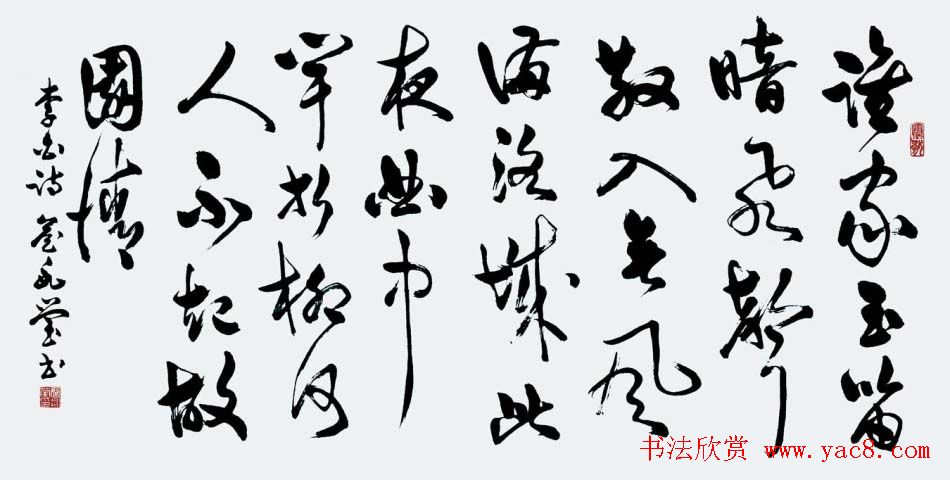 誰家玉笛
暗飛聲
散入春風
滿洛城此
夜曲中
聞折柳何
人不起故
園情
李白詩 書
书法欣赏 www.yac8.com